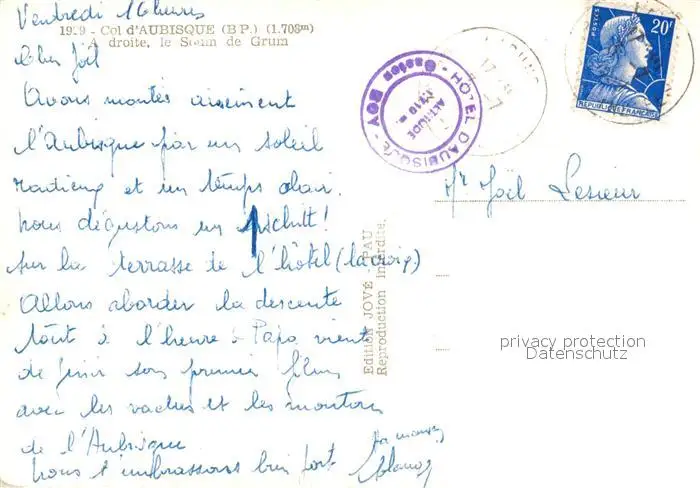 Vendredi 16 heures
1929 - Col d'AUBISQUE (B P.) (1.708m)
A droite, le Soum de Grum
Cher Joël
Avons monté aisément
l'Aubisque par un soleil
radieux et un temps clair.
Nous dégustons un
sur la terrasse de l'hôtel (la croix)
Allons aborder la descente
tout à l'heure. Papa vient
de finir son premier film
avec les vaches et les moutons
de l'Aubisque
Nous t'embrassons bien fort
Ta maman
Edition JOVÉ - PAU
Reproduction interdite.
HOTEL D'AUBISQUE
ALTITUDE
1710 m
POSTES
20F
REPUBLIQUE FRANÇAISE
Mr Joël Lesieur
privacy protection
Datenschutz